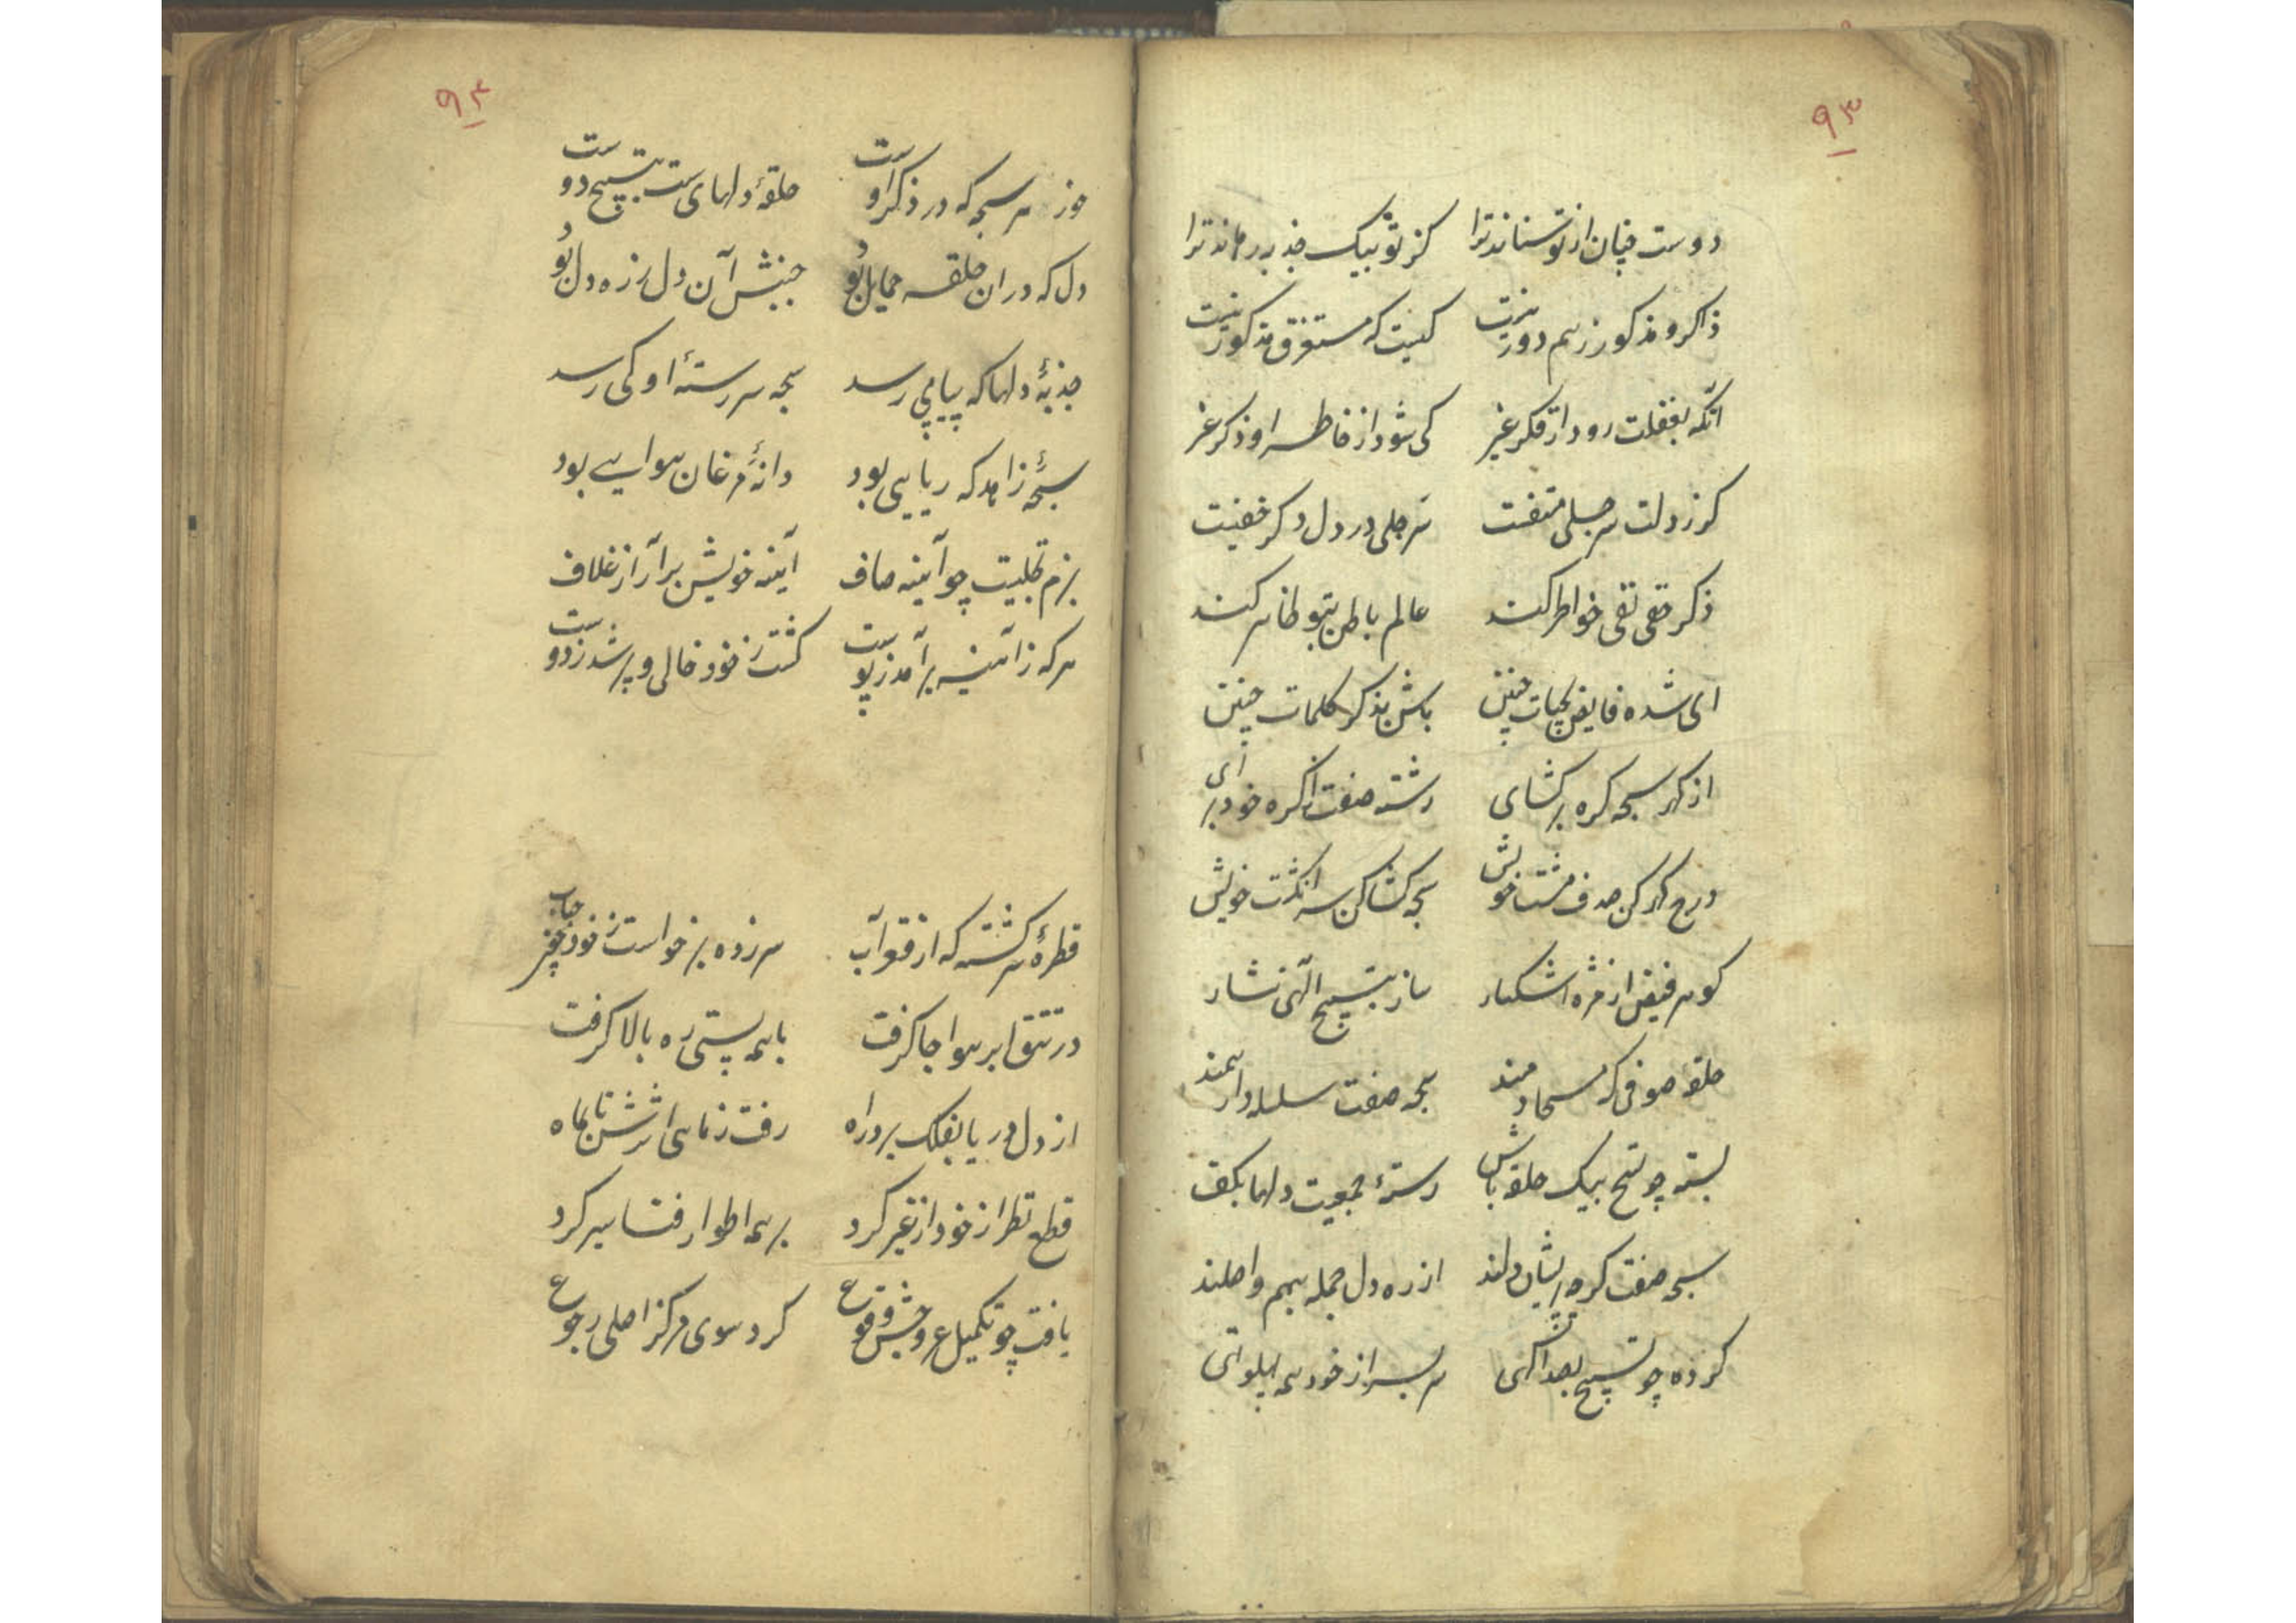 ۹۳
دوست چنان از تو ستاند ترا کز تو بیک جذبه رهاند ترا
ذاکر و مذکور زهم دور نیست کیست که مستغرق مذکور نیست
آنکه بغفلت رود از فکر غیر کی شود از خاطر او ذکر غیر
کر ز دلت سر جلی منتفیست سر جلی در دل ذکر خفیست
ذکر حقی نفی خواطر کند عالم باطن بتو ظاهر کند
ای شده فایض بحیات چنین باش بذکر کلمات چنین
از کهر سبحه کره بر کشای رشته صفت از کره خود برآی
درج کهر کن صدف مشت خویش سبحه کشا کن سر انکشت خویش
کوهر فیض از مژه اشکبار ساز بتسبیح الهی نثار
حلقه صوفی که مسیحا دمند سبحه صفت سلسله دار همند
بسته چو تسبیح بیک حلقه باش رستهٔ جمعیت دلها بکف
سبحه صفت کرچه پریشان دلند از ره دل جمله بهم واصلند
کرده چو تسبیح بصد آکهی سر بسر از خود همه پهلو تهی
۹۴
وز سر سبحه که در ذکر اوست حلقهٔ دلهای ست بتسبیح دوست
دل که در آن حلقه حمایل بود جنبش آن دل ز ره دل بود
جذبهٔ دلها که پیاپی رسد سبحه سر رستهٔ او کی رسد
سبحهٔ زاهد که ریایی بود دانهٔ مرغان هوایی بود
بزم تجلیست چو آیینه صاف آینه خویش برآر از غلاف
هر که ز آیینه برآمد ز پوست کشت ز خود خالی و پر شد ز دوست
قطرهٔ سرکشته که از قعر آب سرزده برخواست ز خود چون حباب
در تتق ابر هوا جا کرفت با همه پستی ره بالا کرفت
از دل دریا بفلک برد راه رفت ز ماهی اثرش تا بماه
قطع نظر از خود و از غیر کرد بر همه اطوار فنا سیر کرد
یافت چو تکمیل عروجش وقوع کرد سوی مرکز اصلی رجوع